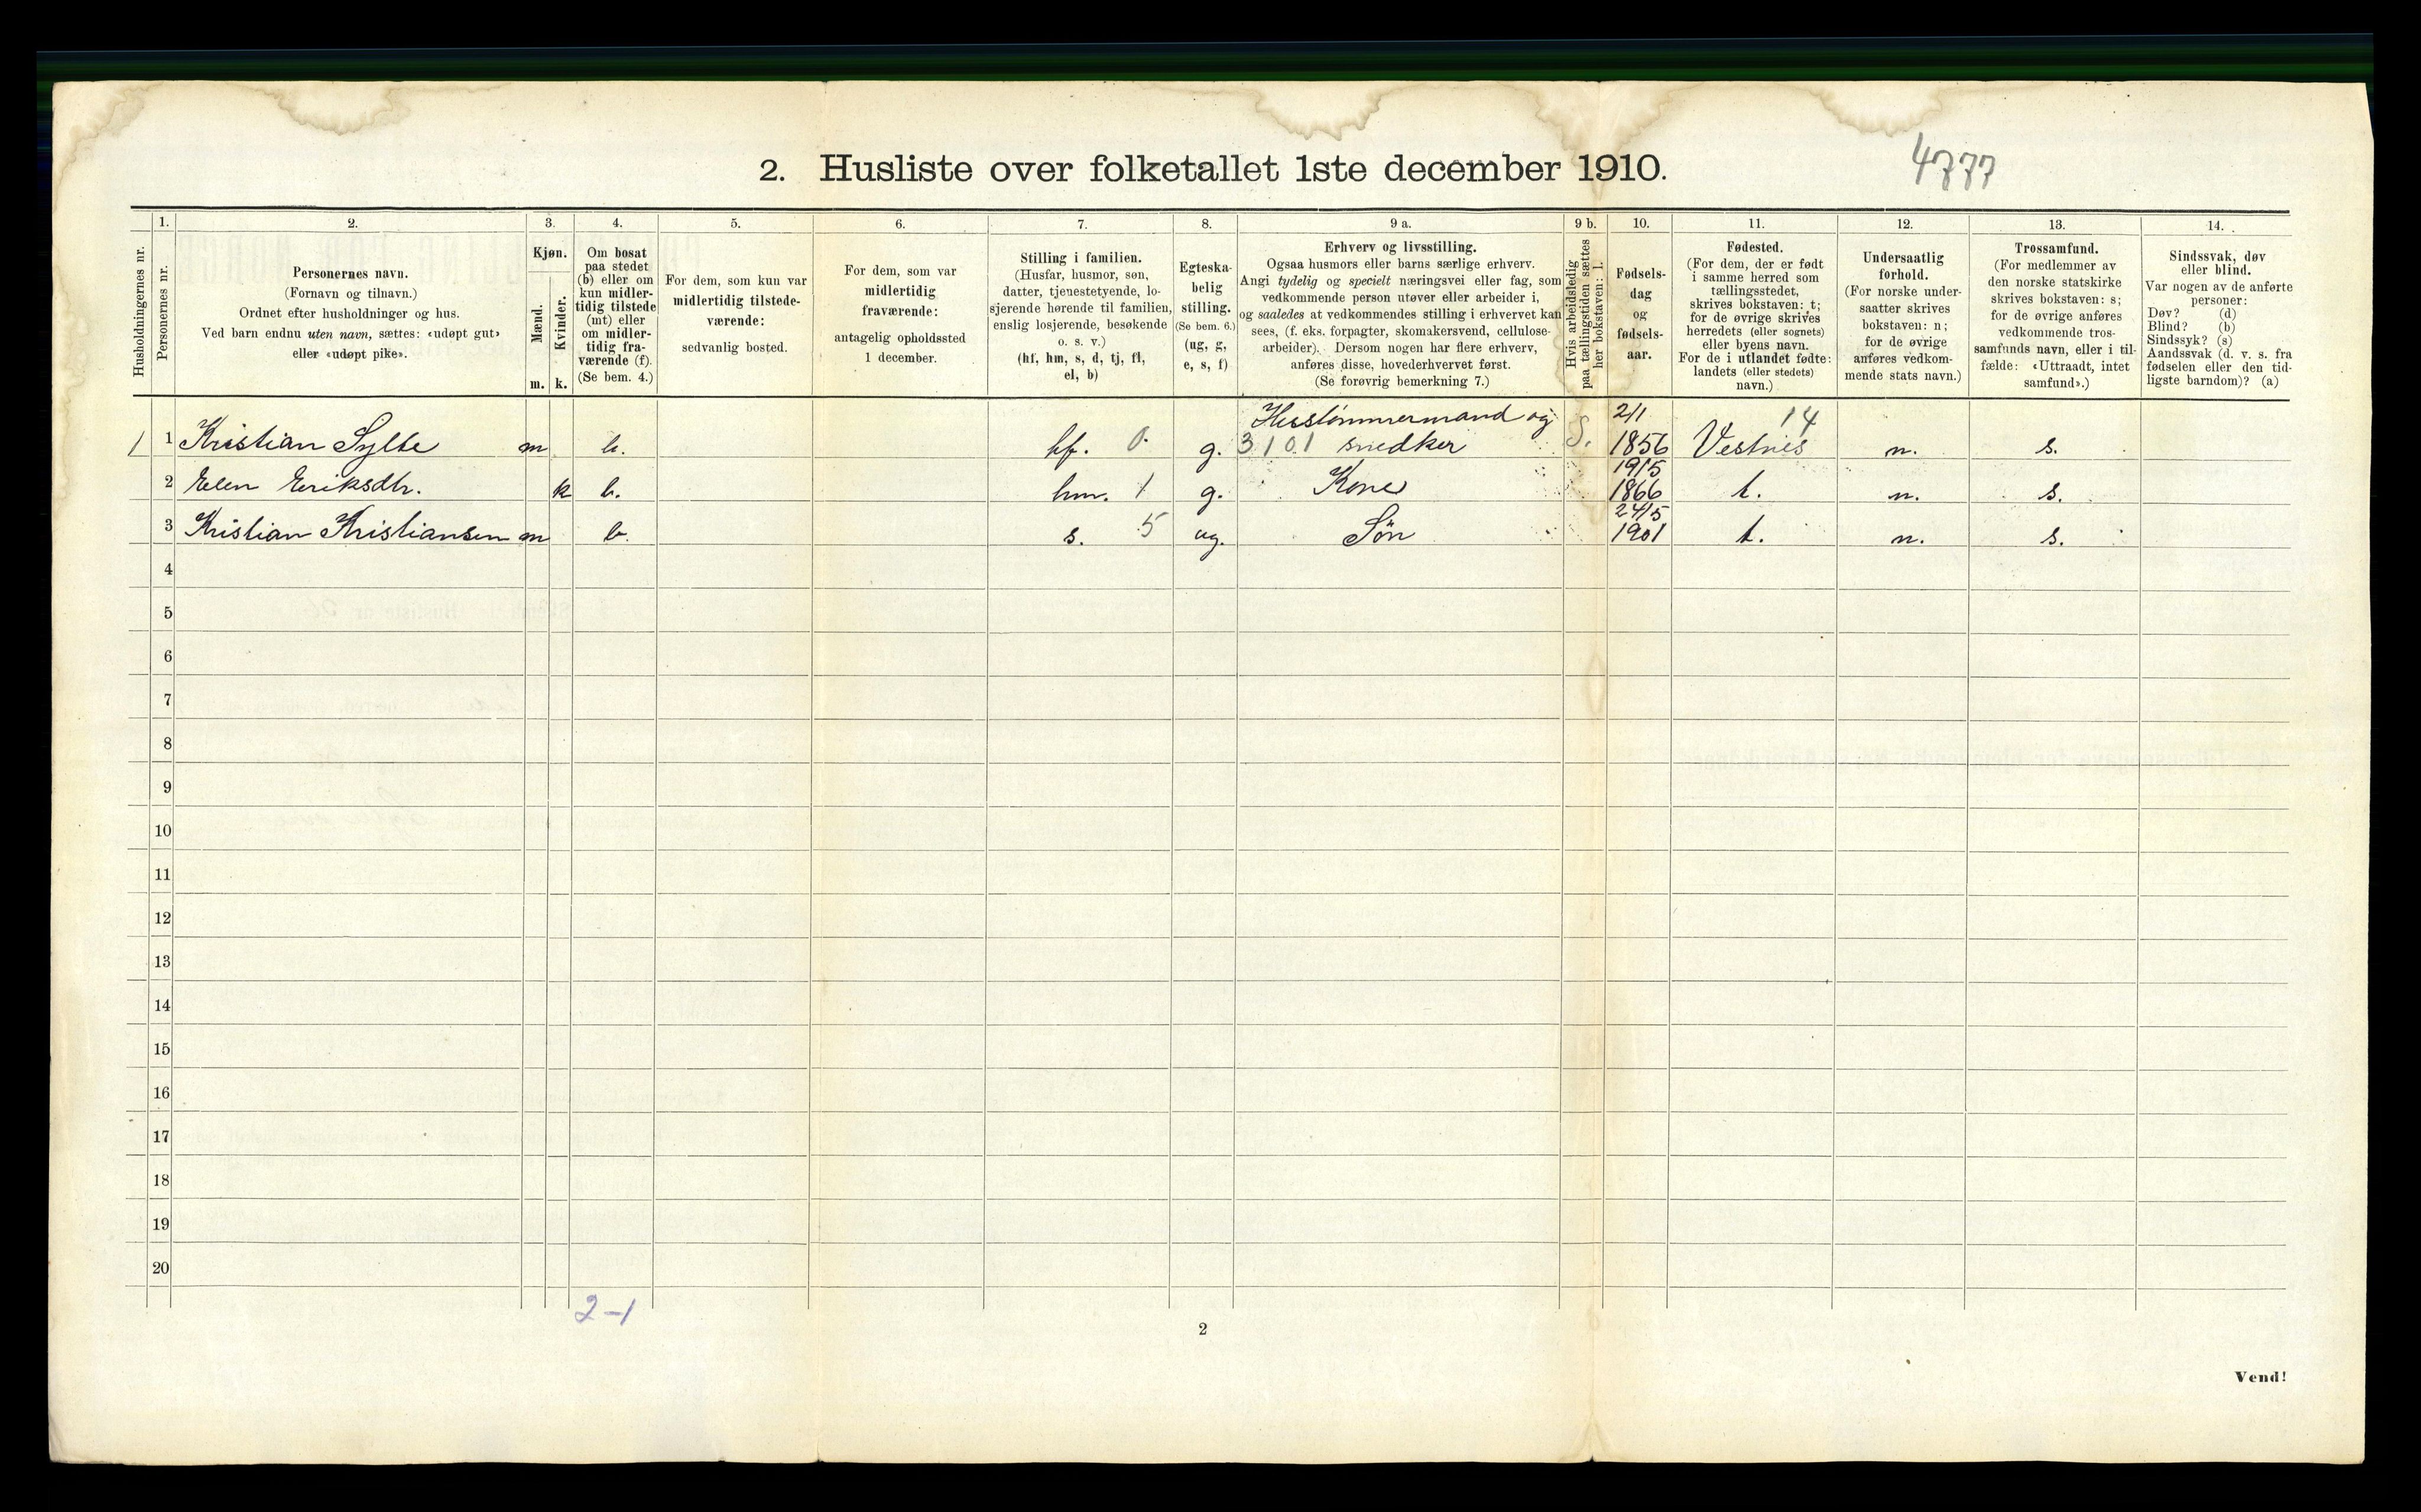 2. Husliste over folketallet 1ste december 1910.
4777
Husholdningernes nr.
1.
Personernes nr.
2.
Personernes navn.
(Fornavn og tilnavn.)
Ordnet efter husholdninger og hus.
Ved barn endnu uten navn, sættes: «udøpt gut»
eller «udøpt pike».
3.
Kjøn.
Mænd.
Kvinder.
m. k.
4.
Om bosat
paa stedet
(b) eller om
kun midler-
tidig tilstede
(mt) eller
om midler-
tidig fra-
værende (f).
(Se bem. 4.)
5.
For dem, som kun var
midlertidig tilstede-
værende:
sedvanlig bosted.
6.
For dem, som var
midlertidig
fraværende:
antagelig opholdssted
1 december.
7.
Stilling i familien.
(Husfar, husmor, søn,
datter, tjenestetyende, lo-
sjerende hørende til familien,
enslig losjerende, besøkende
o. s. v.)
(hf, hm, s, d, tj, fl,
el, b)
8.
Egteska-
belig
stilling.
(Se bem. 6.)
(ug, g,
e, s, f)
9 a.
Erhverv og livsstilling.
Ogsaa husmors eller barns særlige erhverv.
Angi tydelig og specielt næringsvei eller fag, som
vedkommende person utøver eller arbeider i,
og saaledes at vedkommendes stilling i erhvervet kan
sees, (f. eks. forpagter, skomakersvend, cellulose-
arbeider). Dersom nogen har flere erhverv,
anføres disse, hovederhvervet først.
(Se forøvrig bemerkning 7.)
9 b.
Hvis arbeidsledig
paa tællingstiden sættes
her bokstaven: l.
10.
Fødsels-
dag
og
fødsels-
aar.
11.
Fødested.
(For dem, der er født
i samme herred som
tællingsstedet,
skrives bokstaven: t;
for de øvrige skrives
herredets (eller sognets)
eller byens navn.
For de i utlandet fødte:
landets (eller stedets)
navn.)
12.
Undersaatlig
forhold.
(For norske under-
saatter skrives
bokstaven: n;
for de øvrige
anføres vedkom-
mende stats navn.)
13.
Trossamfund.
(For medlemmer av
den norske statskirke
skrives bokstaven: s;
for de øvrige anføres
vedkommende tros-
samfunds navn, eller i til-
fælde: «Uttraadt, intet
samfund».)
14.
Sindssvak, døv
eller blind.
Var nogen av de anførte
personer:
Døv? (d)
Blind? (b)
Sindssyk? (s)
Aandssvak (d. v. s. fra
fødselen eller den tid-
ligste barndom)? (a)
Husstømmermand og 2/1 14
1 1 Kristian Sylte m b. hf. 0. g. 3101 snedker S. 1856 Vestnes n. s.
19/5
2 Elen Eriksdtr. k b. hm. 1 g. Kone 1866 t. n. s.
24/5
3 Kristian Kristiansen m b. s. 5 ug. Søn 1901 t. n. s.
4
5
6
7
8
9
10
11
12
13
14
15
16
17
18
19
20
2-1
2
Vend!